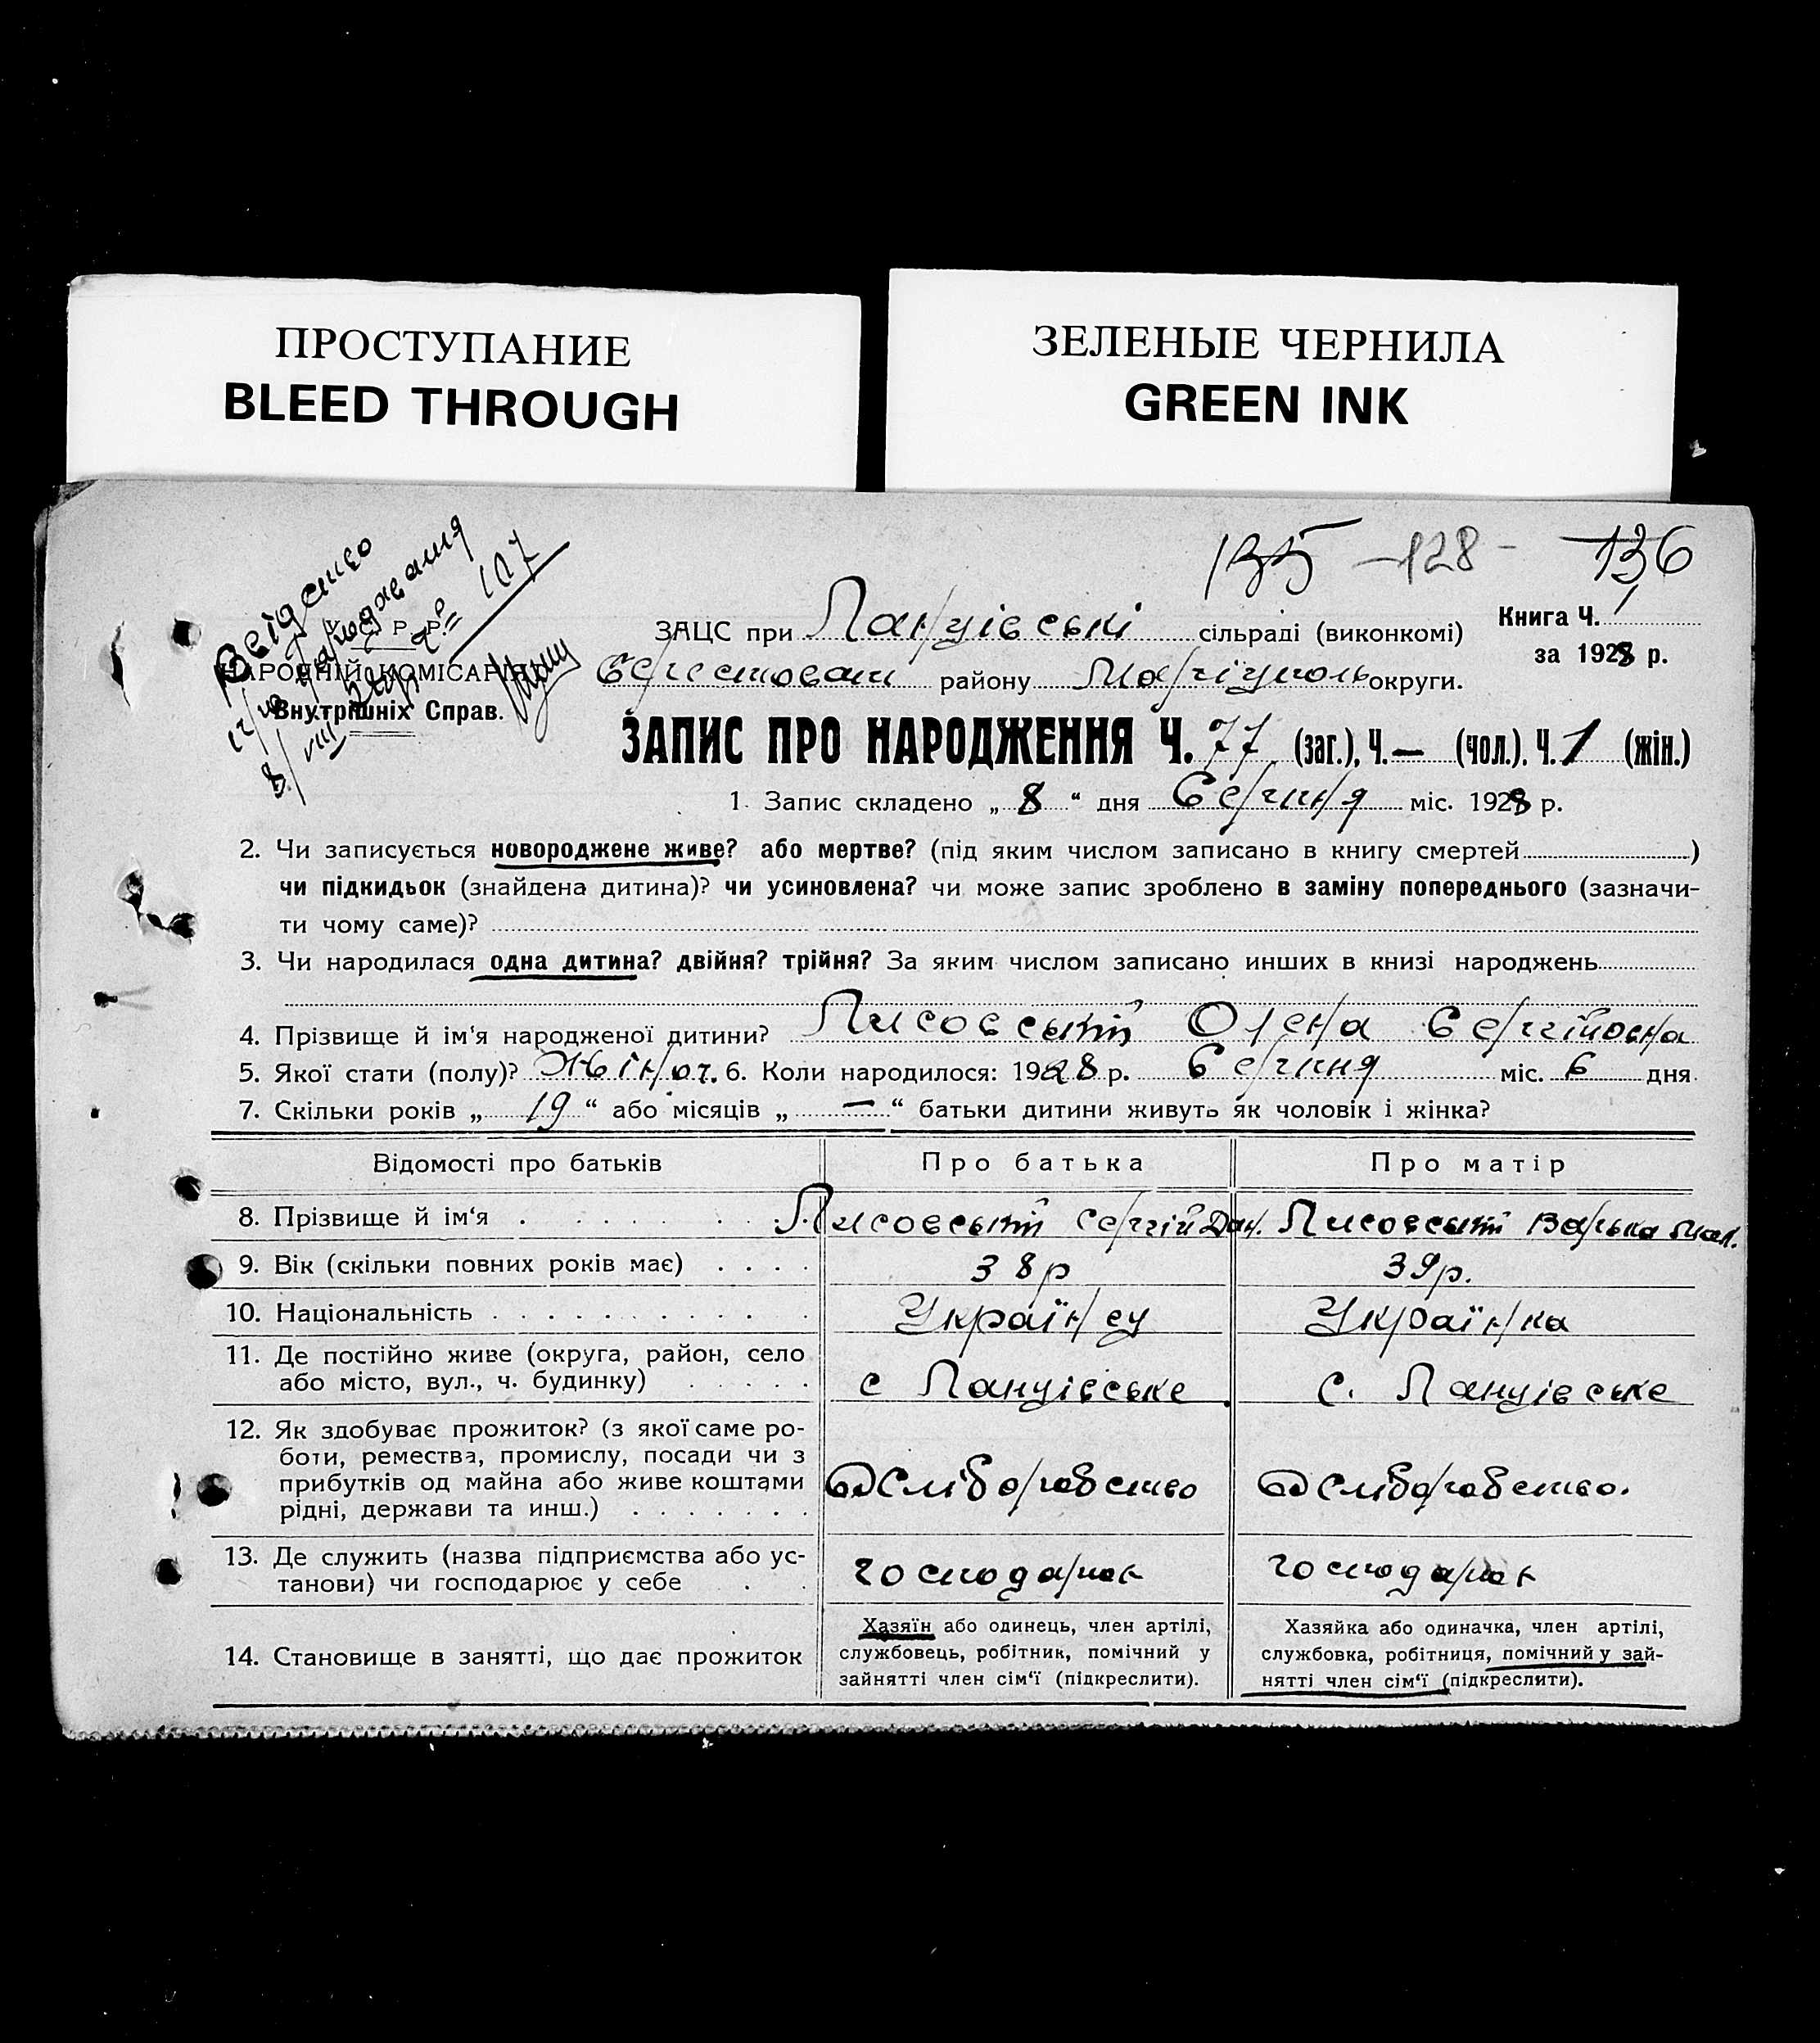 ПРОСТУПАНИЕ
BLEED THROUGH
ЗЕЛЕНЫЕ ЧЕРНИЛА
GREEN INK
135 -128- 136
ЗАЦС при Ланцівські сільраді (виконкомі)
Книга Ч. 1
за 1928 р.
району Маріуполь округи.
У С Р Р
НАРОДНІЙ КОМІСАРІЯТ
Внутрішніх Справ.
107
ЗАПИС ПРО НАРОДЖЕННЯ Ч. 77 (заг.), Ч. — (чол.). Ч. 1 (жін.)
1. Запис складено „ 8 “ дня Серпня міс. 1928 р.
2. Чи записується новороджене живе? або мертве? (під яким числом записано в книгу смертей )
чи підкидьок (знайдена дитина)? чи усиновлена? чи може запис зроблено в заміну попереднього (зазначи-
ти чому саме)?
3. Чи народилася одна дитина? двійня? трійня? За яким числом записано инших в книзі народжень
4. Прізвище й ім‘я народженої дитини? Лисовський Олена Сергійовна
5. Якої стати (полу)? Жіноч. 6. Коли народилося: 1928 р. Серпня міс. 6 дня
7. Скільки років „ 19 “ або місяців „ — “ батьки дитини живуть як чоловік і жінка?
Відомості про батьків Про батька Про матір
8. Прізвище й ім‘я Лисовський Сергій Дан. Лисовський Варька
9. Вік (скільки повних років має) 38р 39р.
10. Національність Українец Українка
11. Де постійно живе (округа, район, село
або місто, вул., ч. будинку) с Ланцівське с. Ланцівське
12. Як здобуває прожиток? (з якої саме ро-
боти, ремества, промислу, посади чи з
прибутків од майна або живе коштами
рідні, держави та инш.) хліборобство хліборобство.
13. Де служить (назва підприємства або ус-
танови) чи господарює у себе господарює господарює
14. Становище в занятті, що дає прожиток
Хазяїн або одинець, член артілі,
службовець, робітник, помічний у
зайнятті член сім‘ї (підкреслити).
Хазяйка або одиначка, член артілі,
службовка, робітниця, помічний у зай-
нятті член сім‘ї (підкреслити).